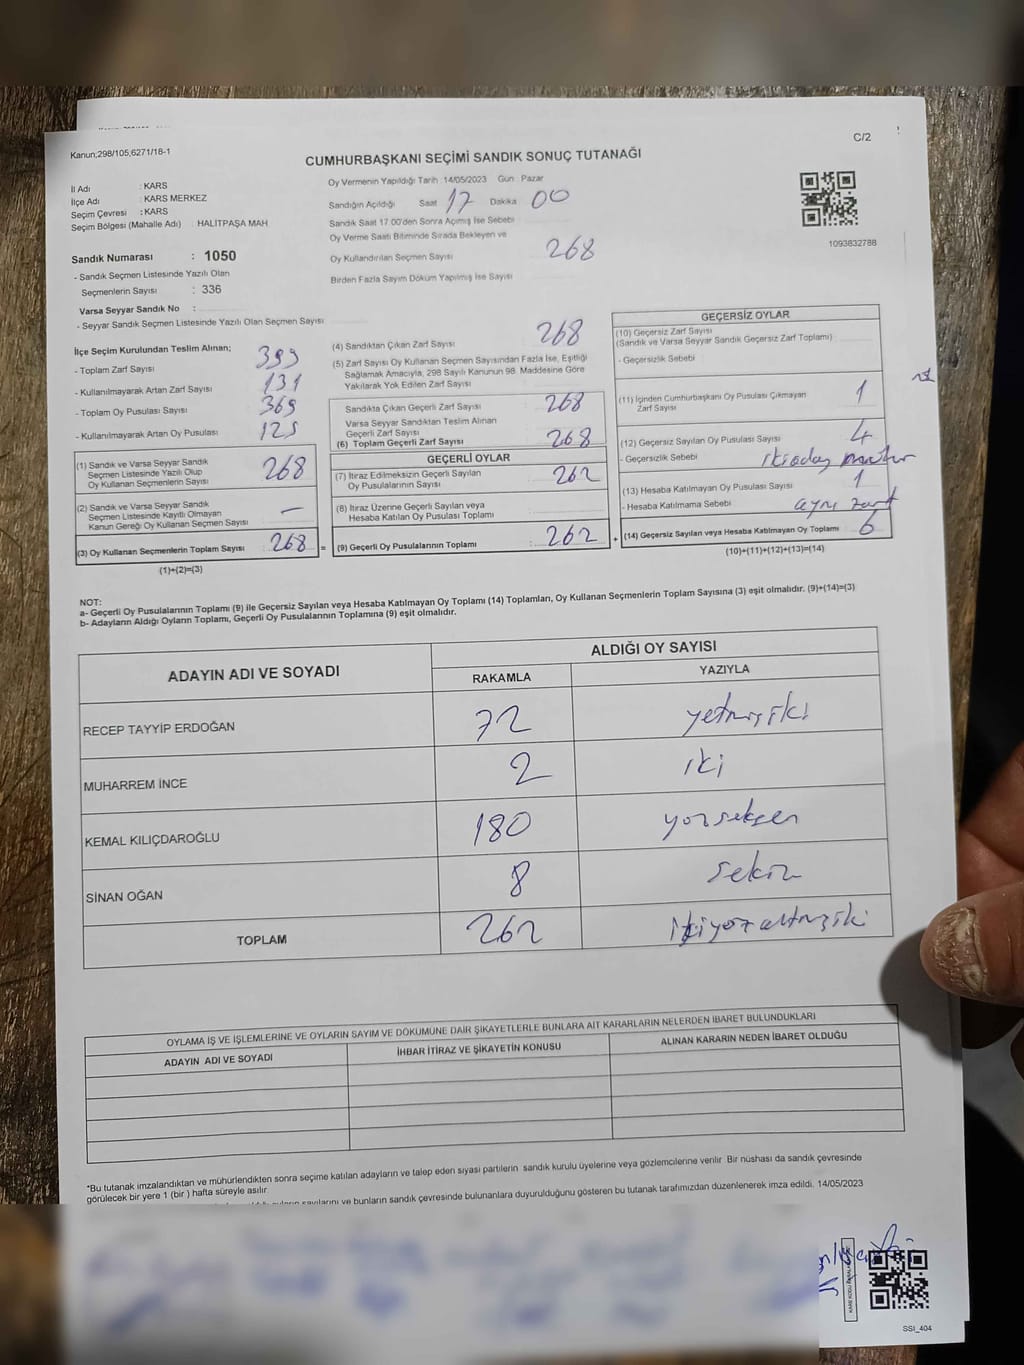 C/2
Kanun;298/105;6271/18-1
CUMHURBAŞKANI SEÇİMİ SANDIK SONUÇ TUTANAĞI
İl Adı : KARS
İlçe Adı : KARS MERKEZ
Seçim Çevresi : KARS
Seçim Bölgesi (Mahalle Adı) : HALİTPAŞA MAH
Sandık Numarası : 1050
- Sandık Seçmen Listesinde Yazılı Olan
Seçmenlerin Sayısı : 336
Varsa Seyyar Sandık No :
- Seyyar Sandık Seçmen Listesinde Yazılı Olan Seçmen Sayısı :
Oy Vermenin Yapıldığı Tarih :14/05/2023 Gün : Pazar
Sandığın Açıldığı Saat 17 Dakika 00
Sandık Saat 17.00'den Sonra Açımış İse Sebebi
Oy Verme Saati Bitiminde Sırada Bekleyen ve
Oy Kullandırılan Seçmen Sayısı 268
Birden Fazla Sayım Döküm Yapılmış İse Sayısı
1093832788
İlçe Seçim Kurulundan Teslim Alınan;
- Toplam Zarf Sayısı 399
- Kullanılmayarak Artan Zarf Sayısı 131
- Toplam Oy Pusulası Sayısı 369
- Kullanılmayarak Artan Oy Pusulası 125
(1) Sandık ve Varsa Seyyar Sandık
Seçmen Listesinde Yazılı Olup
Oy Kullanan Seçmenlerin Sayısı 268
(2) Sandık ve Varsa Seyyar Sandık
Seçmen Listesinde Kayıtlı Olmayan
Kanun Gereği Oy Kullanan Seçmen Sayısı —
(3) Oy Kullanan Seçmenlerin Toplam Sayısı 268 =
(1)+(2)=(3)
(4) Sandıktan Çıkan Zarf Sayısı 268
(5) Zarf Sayısı Oy Kullanan Seçmen Sayısından Fazla İse, Eşitliği
Sağlamak Amacıyla, 298 Sayılı Kanunun 98. Maddesine Göre
Yakılarak Yok Edilen Zarf Sayısı
Sandıkta Çıkan Geçerli Zarf Sayısı 268
Varsa Seyyar Sandıktan Teslim Alınan
Geçerli Zarf Sayısı
(6) Toplam Geçerli Zarf Sayısı 268
GEÇERLİ OYLAR
(7) İtiraz Edilmeksizin Geçerli Sayılan
Oy Pusulalarının Sayısı 262
(8) İtiraz Üzerine Geçerli Sayılan veya
Hesaba Katılan Oy Pusulası Toplamı
(9) Geçerli Oy Pusulalarının Toplamı : 262 +
GEÇERSİZ OYLAR
(10) Geçersiz Zarf Sayısı
(Sandık ve Varsa Seyyar Sandık Geçersiz Zarf Toplamı)
- Geçersizlik Sebebi
(11) İçinden Cumhurbaşkanı Oy Pusulası Çıkmayan
Zarf Sayısı 1
(12) Geçersiz Sayılan Oy Pusulası Sayısı 4
- Geçersizlik Sebebi
(13) Hesaba Katılmayan Oy Pusulası Sayısı 1
- Hesaba Katılmama Sebebi aynı zarf
(14) Geçersiz Sayılan veya Hesaba Katılmayan Oy Toplamı 6
(10)+(11)+(12)+(13)=(14)
NOT:
a- Geçerli Oy Pusulalarının Toplamı (9) ile Geçersiz Sayılan veya Hesaba Katılmayan Oy Toplamı (14) Toplamları, Oy Kullanan Seçmenlerin Toplam Sayısına (3) eşit olmalıdır. (9)+(14)=(3)
b- Adayların Aldığı Oyların Toplamı, Geçerli Oy Pusulalarının Toplamına (9) eşit olmalıdır.
ADAYIN ADI VE SOYADI ALDIĞI OY SAYISI
RAKAMLA YAZIYLA
RECEP TAYYİP ERDOĞAN 72 yetmişiki
MUHARREM İNCE 2 iki
KEMAL KILIÇDAROĞLU 180 yüzseksen
SİNAN OĞAN 8 sekiz
TOPLAM 262 ikiyüzaltmışiki
OYLAMA İŞ VE İŞLEMLERİNE VE OYLARIN SAYIM VE DÖKÜMÜNE DAİR ŞİKAYETLERLE BUNLARA AİT KARARLARIN NELERDEN İBARET BULUNDUKLARI
ADAYIN ADI VE SOYADI İHBAR İTİRAZ VE ŞİKAYETİN KONUSU ALINAN KARARIN NEDEN İBARET OLDUĞU
*Bu tutanak imzalandıktan ve mühürlendikten sonra seçime katılan adayların ve talep eden siyasi partilerin sandık kurulu üyelerine veya gözlemcilerine verilir. Bir nüshası da sandık çevresinde
görülecek bir yere 1 (bir ) hafta süreyle asılır.
sayılarını ve bunların sandık çevresinde bulunanlara duyurulduğunu gösteren bu tutanak tarafımızdan düzenlenerek imza edildi. 14/05/2023
SSI_404